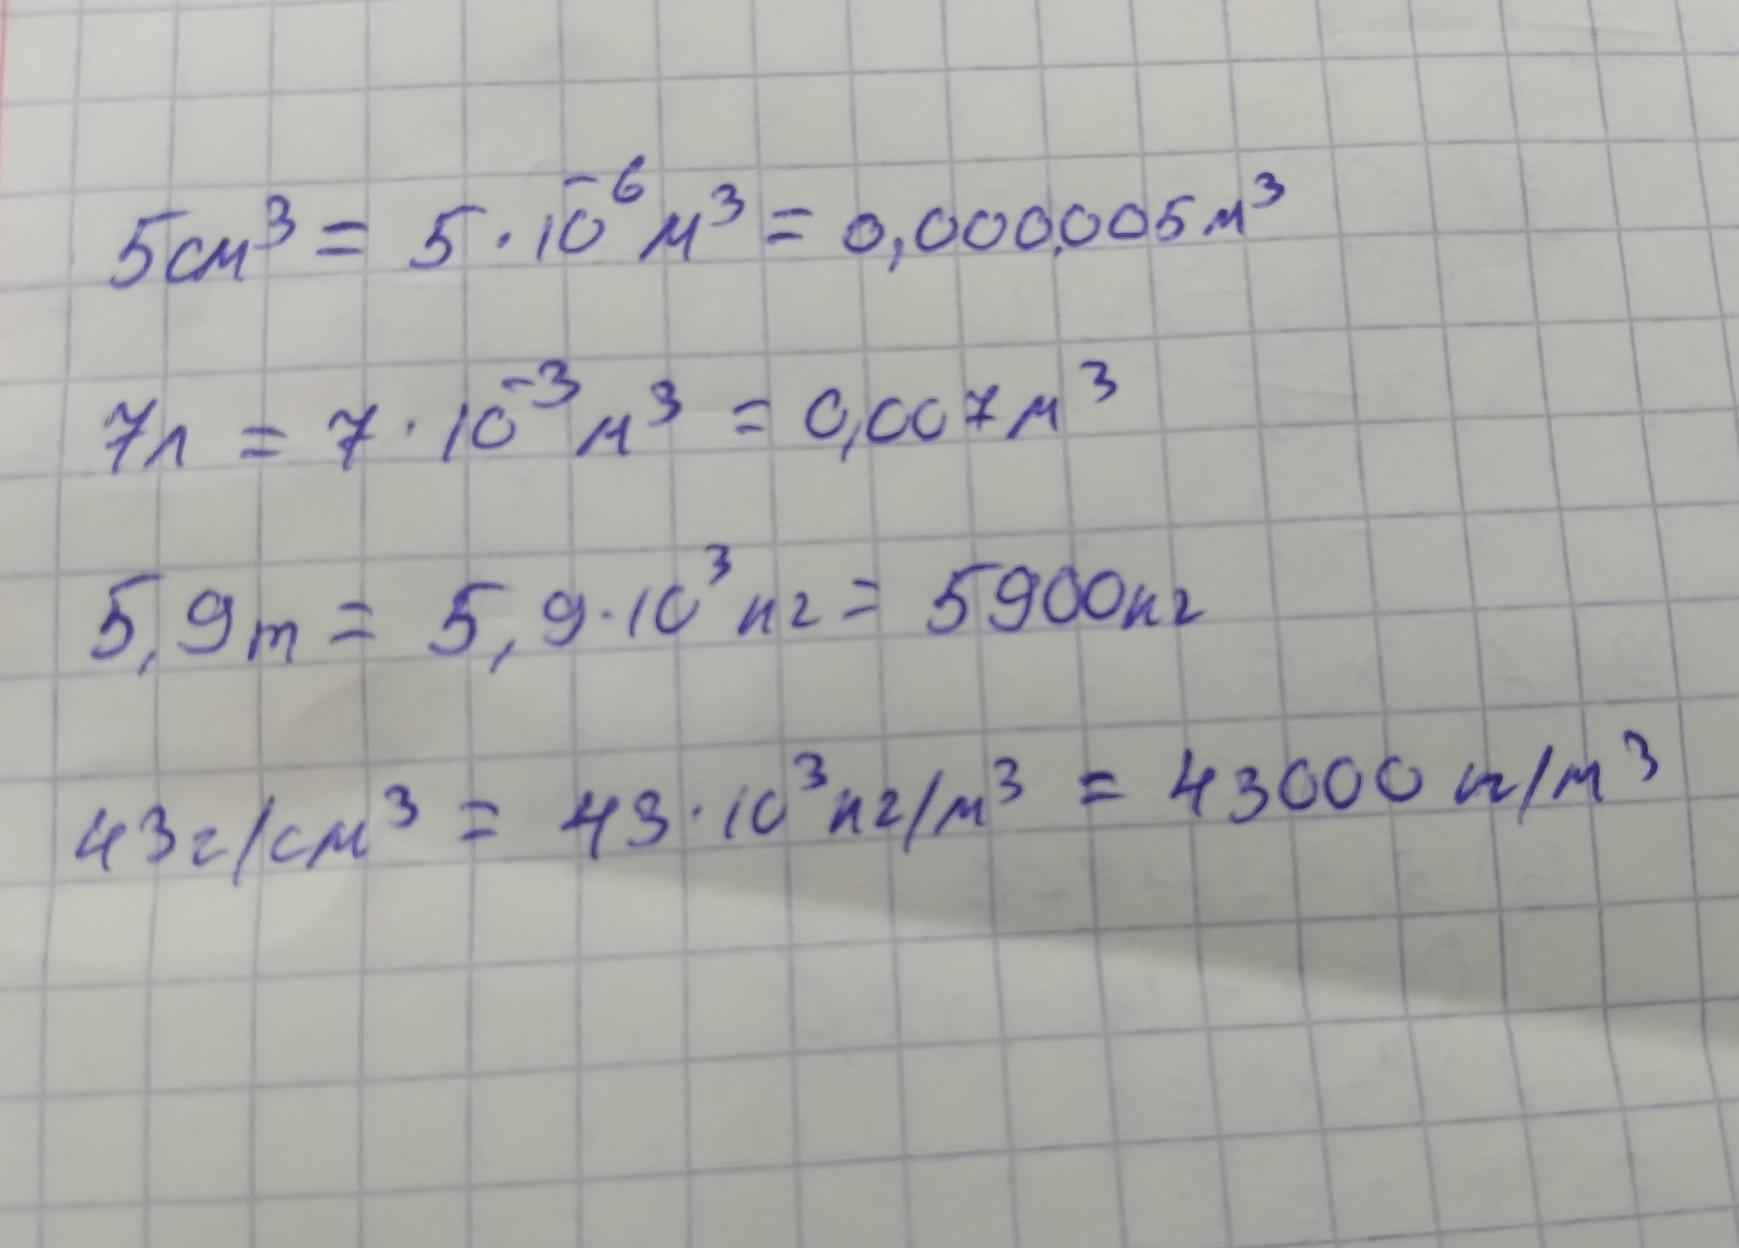 5см³ = 5·10⁻⁶ м³ = 0,000005м³
7л = 7·10⁻³ м³ = 0,007м³
5,9т = 5,9·10³ кг = 5900кг
43г/см³ = 43·10³ кг/м³ = 43000 кг/м³